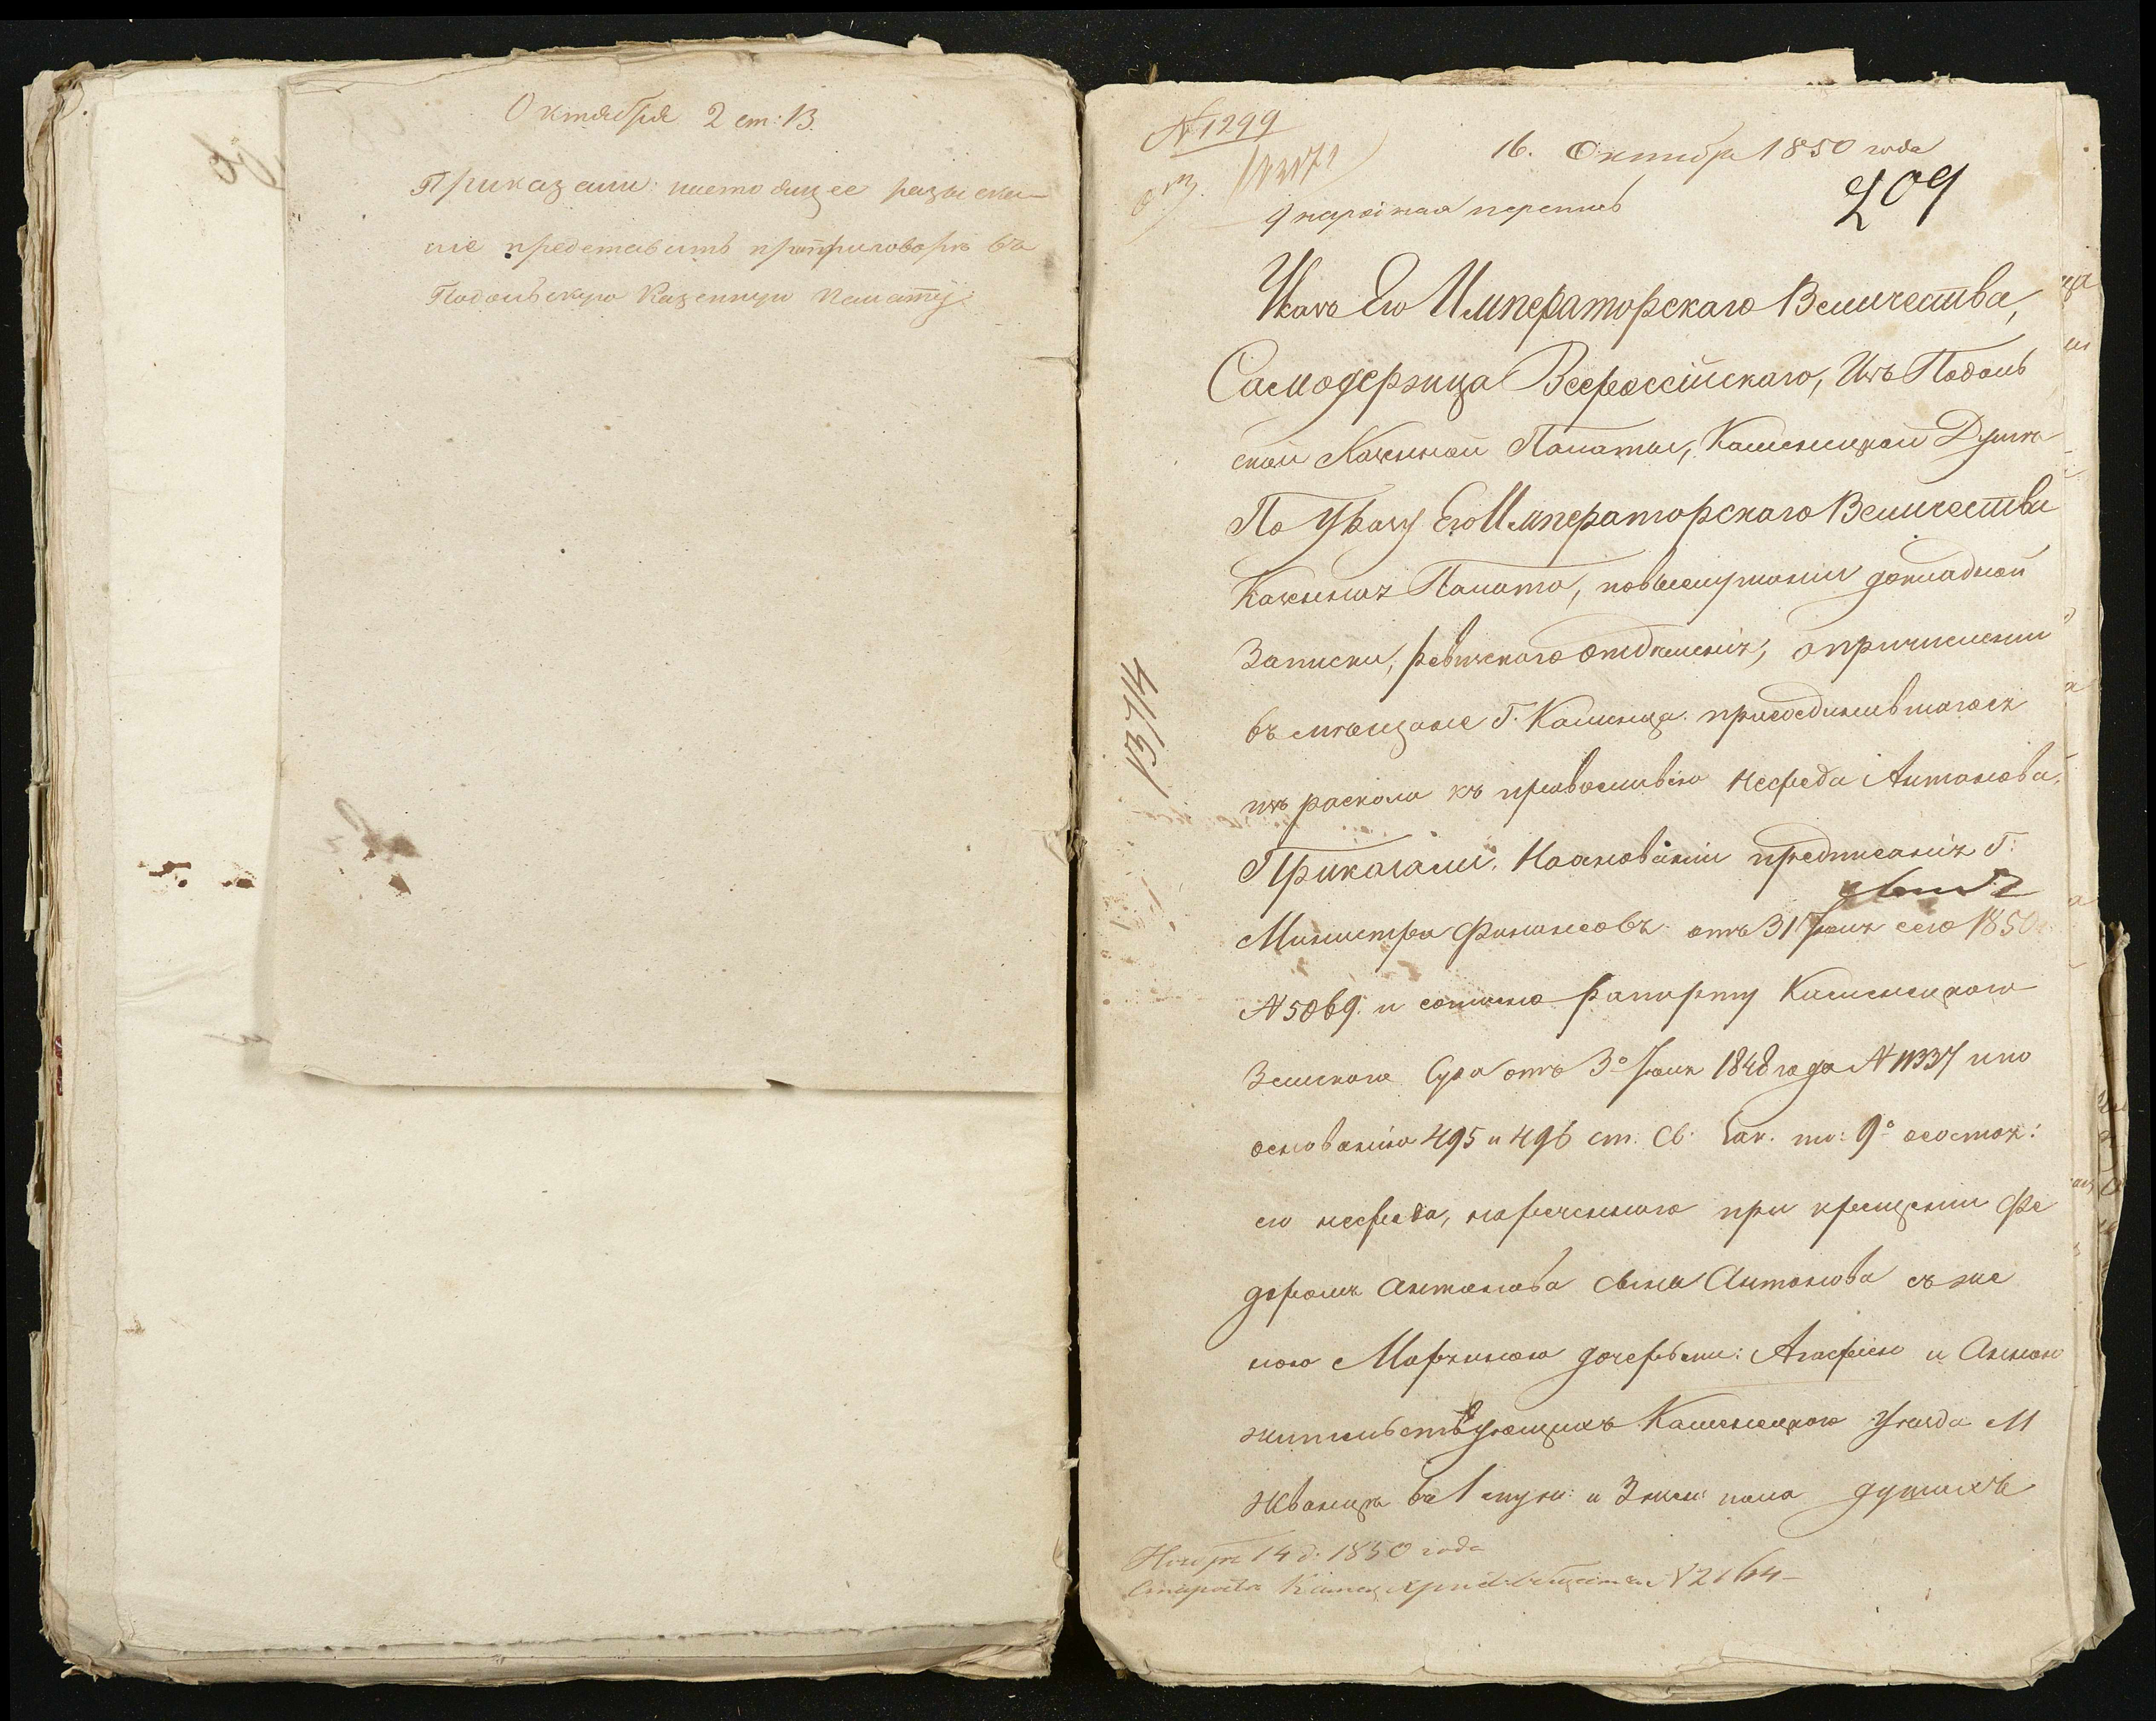 Октября 2 ст: 13.
Приказали: настоящее разыска-
ніе представить при приговорѣ въ
Подольскую Казенную Палату.
№ 1299
16. Октября 1850 года
209
9 народная перепись
Указъ Его Императорскаго Величества,
Самодержца Всероссійскаго, Изъ Подоль
ской Казенной Палаты, Каменецкой Думѣ
По Указу Его Императорскаго Величества
Казенная Палата, по выслушаніи докладной
Записки, Ревизскаго Отдѣленія, о причисленіи
въ мѣщане Г. Каменца присоединившагося
изъ раскола къ православію Нефеда Антонова.
Приказали. На основаніи предписанія Г.
Министра Финансовъ отъ 31 Іюля сего 1850
№ 5069. и согласно рапорту Каменецкаго
Земскаго Суда отъ 3º Іюля 1848 года № 11337 и по
основанію 495 и 496 ст. Св. Зак. то: 9º о состоя:
его нефеда, нареченнаго при крещеніи Фе
доромъ Антонова сына Антонова съ же
ною Мариною дочерьми: Агафіею и Анною
жительствующихъ Каменецкаго Уѣзда М
Жванцѣ въ 1 муж: и 3 жен: пола душахъ
13714
Ноября 14 д. 1850 года
Старостѣ Камен. Христ. Общества № 2164